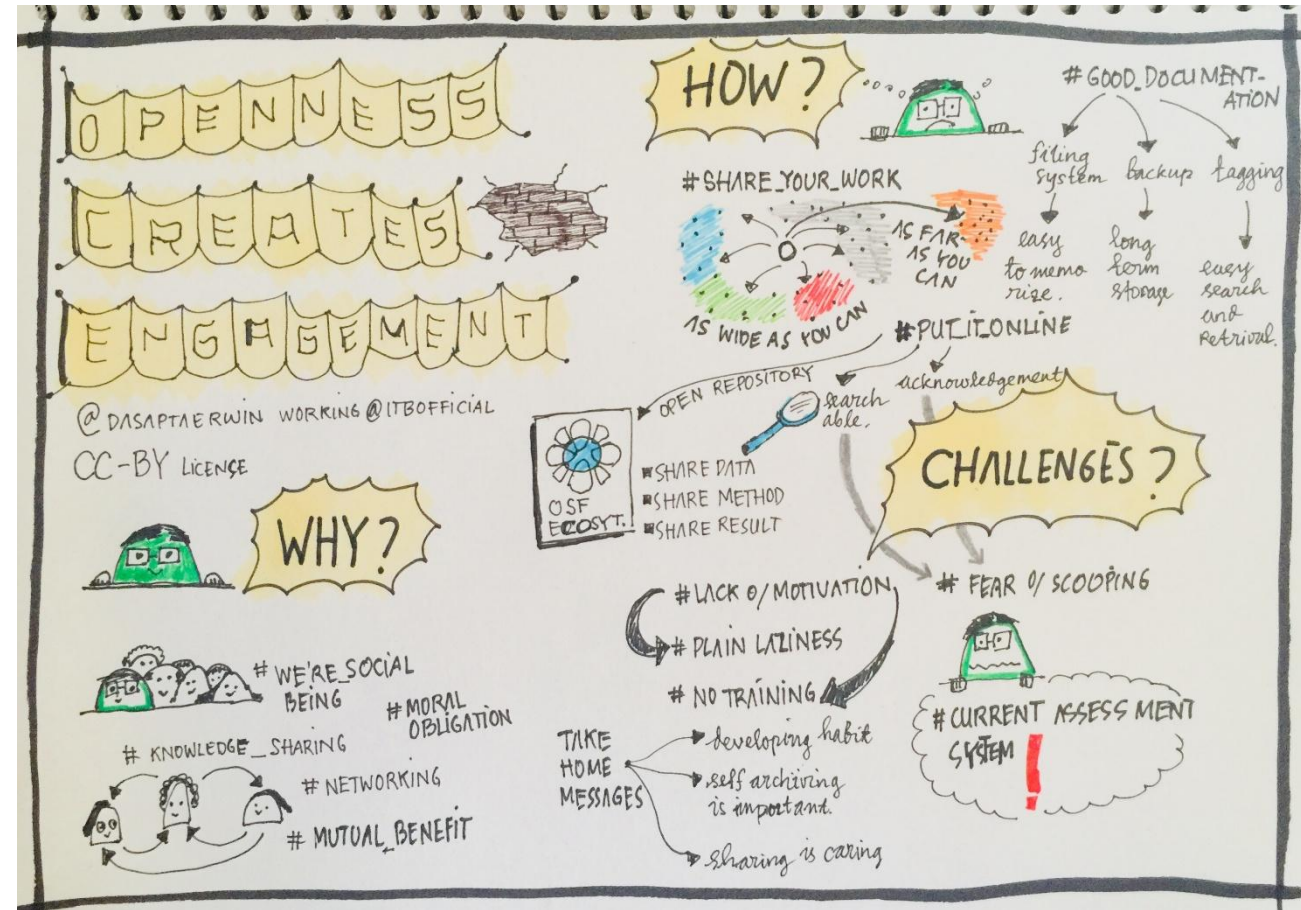 OPENNESS
CREATES
ENGAGEMENT
@DASAPTAERWIN WORKING@ITBOFFICIAL
CC-BY LICENSE
WHY?
# WE'RE_SOCIAL
BEING
# MORAL
OBLIGATION
# KNOWLEDGE_SHARING
# NETWORKING
# MUTUAL_BENEFIT
HOW?
# SHARE_YOUR_WORK
AS FAR
AS YOU
CAN
AS WIDE AS YOU CAN
# GOOD_DOCUMENT-
ATION
filing
system
backup
tagging
easy
to memo
rize.
long
term
storage
easy
search
and
retrival.
# PUT_IT_ONLINE
OPEN REPOSITORY
search
able.
acknowledgement
OSF
ECOSYT.
SHARE DATA
SHARE METHOD
SHARE RESULT
CHALLENGES?
# LACK O/ MOTIVATION
# PLAIN LAZINESS
# NO TRAINING
# FEAR O/ SCOOPING
# CURRENT ASSESSMENT
SYSTEM !
TAKE
HOME
MESSAGES
developing habit
self archiving
is important.
sharing is caring